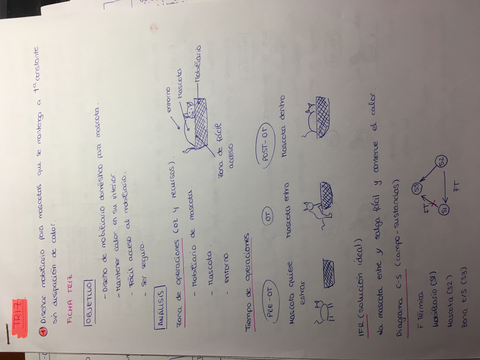 TRIZ
① Diseñar mobiliario para mascotas que se mantenga a Tª constante
sin disipación de calor
FICHA TRIZ
OBJETIVO
- Diseño de mobiliario doméstico para mascota.
- Mantener calor en su interior
- Fácil acceso al mobiliario.
- Ser seguro
ANÁLISIS
Zona de operaciones (OZ y recursos)
- Mobiliario de mascota
- Mascota
- entorno
entorno
mascota
Mobiliario
Zona de fácil
acceso
Tiempo de operaciones
PRE-OT
OT
POST-OT
Mascota quiere
entrar
Mascota entra
Mascota dentro
IFR (solución ideal)
La mascota entre y salga fácil y conserve el calor
Diagrama C-S (campo-sustancias)
F Térmico
Mobiliario (S1)
Mascota (S2)
Zona E/S (S3)
S3
S2
S1
FT
FT